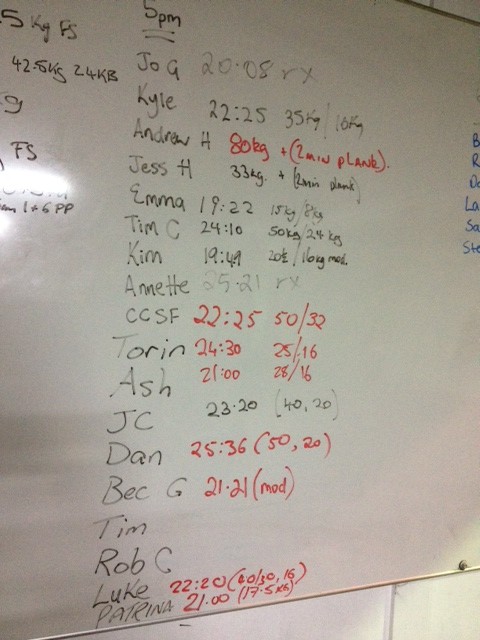 5 Kg FS
42.5Kg 24KB
FS
1+6 PP
5pm
Jo G 20.08 rx
Kyle 22:25 35Kg/16Kg
Andrew H 80kg + (2min PLANK).
Jess H 33kg. + (2min plank)
Emma 19:22 15kg/8kg
Tim C 24:10 50kg/24kg
Kim 19:49 /16kg mod.
Annette 25.21 rx
CCSF 22:25 50/32
Torin 24:30 25/16
Ash 21:00 28/16
JC 23.20 (40, 20)
Dan 25:36 (50, 20)
Bec G 21.21 (mod)
Tim
Rob C
Luke 22:20 (40/30, 16)
PATRINA 21.00 (17.5KG)